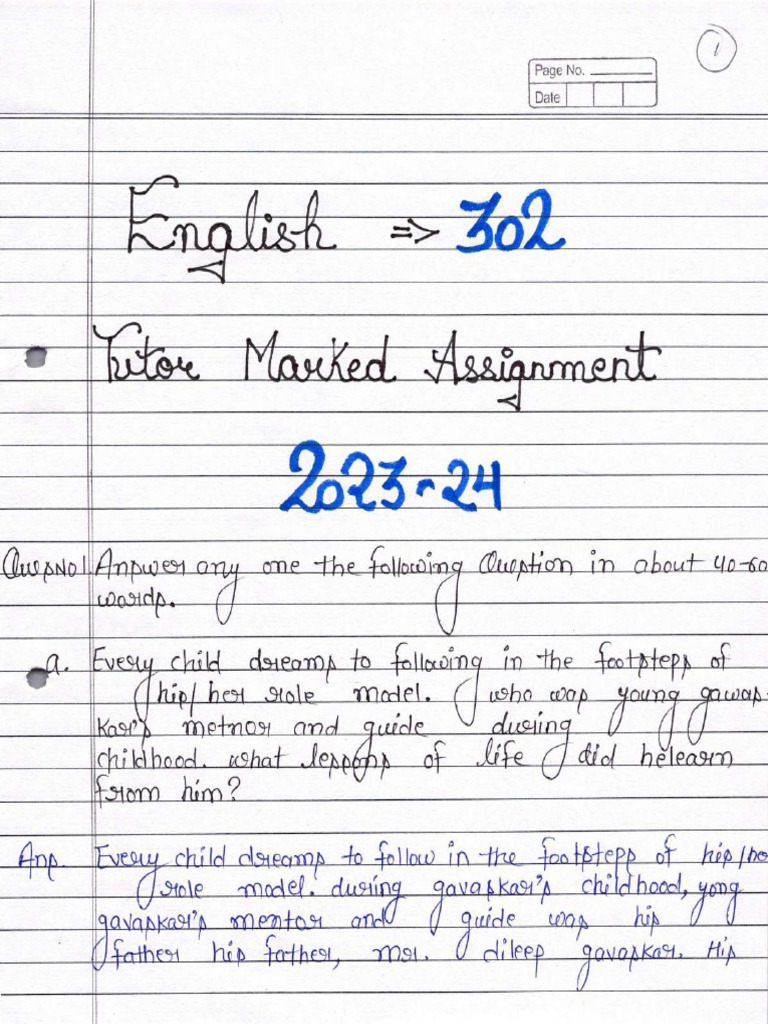 1
Page No.
Date
English => 302
Tutor Marked Assignment
2023-24
Ques No 1. Answer any one the following Question in about 40-60
words.
a. Every child dreams to following in the footsteps of
his/her role model. who was young gawas-
kar's metnor and guide during
childhood. what lessons of life did helearn
from him?
Ans. Every child dreams to follow in the footsteps of his/he
role model. during gavaskar's childhood, yong
gavaskar's mentor and guide was his
father his father, mr. dileep gavaskar. His